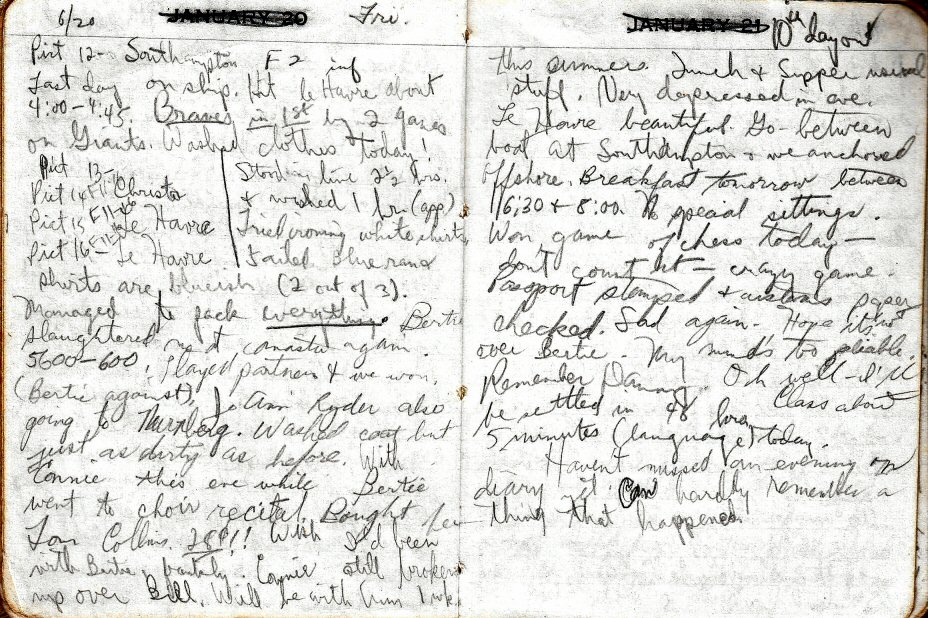 6/20 JANUARY 20 Fri.
Pict 12— Southampton F 2 inf
Last day on ship. Hit Le Havre about
4:00-4:45. Braves in 1st by 2 games
on Giants. Washed clothes today!
Pict 13—
Pict 14 F11 Christa
Pict 15 F11 Le Havre
Pict 16— F11 Le Havre
Stood in line 2½ hrs.
& washed 1 hr. (app)
Tried ironing white shirts
Failed. Blue ran &
shirts are blueish (2 out of 3).
Managed to pack everything. Bertie
slaughtered me at canasta again.
5600-600. Played partners & we won.
(Bertie against). Jo Ann Ryder also
going to Nurnberg. Washed coat but
just as dirty as before. With
Connie this eve while Bertie
went to choir recital. Bought her
Tom Collins. 20¢!! Wish I'd been
with Bertie, partly. Connie still broken
up over Bill. Will be with him 1 wk.
JANUARY 21 10th day out
this summer. Lunch & Supper usual
stuff. Very depressed in eve.
Le Havre beautiful. Go-between
boat at Southampton & we anchored
offshore. Breakfast tomorrow between
6:30 & 8:00. No special sittings.
Won game of chess today—
don't count it— crazy game.
Passport stamped & customs paper
checked. Sad again. Hope it's not
over Bertie. My mind's too pliable.
Remember Danny. Oh well—I'll
be settled in 48 hrs. Class about
5 minutes (language) today.
Haven't missed an evening on
diary yet. Can hardly remember a
thing that happened.